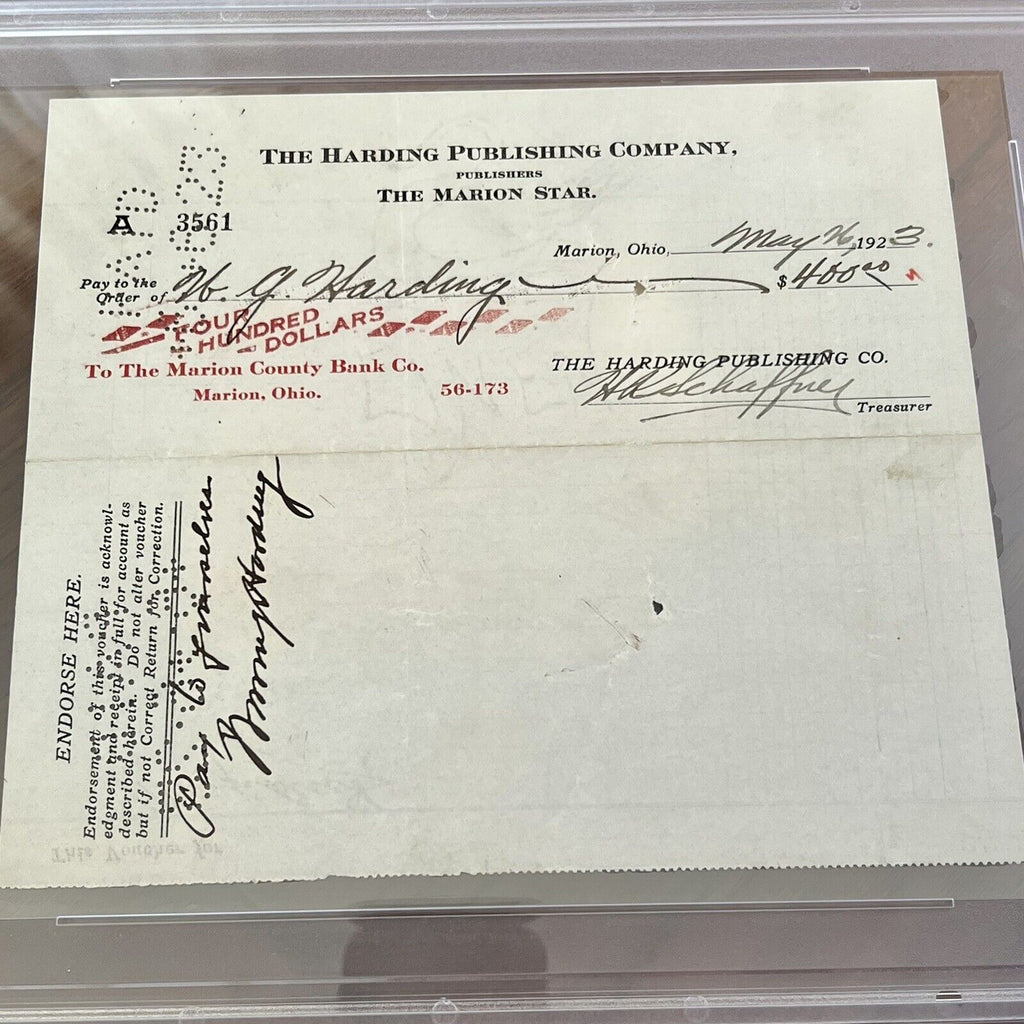 THE HARDING PUBLISHING COMPANY,
PUBLISHERS
THE MARION STAR.
A 3561
Marion, Ohio, May 26, 1923.
Pay to the Order of W. G. Harding $400 00
FOUR
HUNDRED
DOLLARS
To The Marion County Bank Co.
Marion, Ohio. 56-173
THE HARDING PUBLISHING CO.
H A Schaffner
Treasurer
ENDORSE HERE.
Endorsement of this voucher is acknowl-
edgment and receipt in full for account as
described herein. Do not alter voucher
but if not Correct Return for Correction.
Pay to yourselves
Warren G Harding
This Voucher for